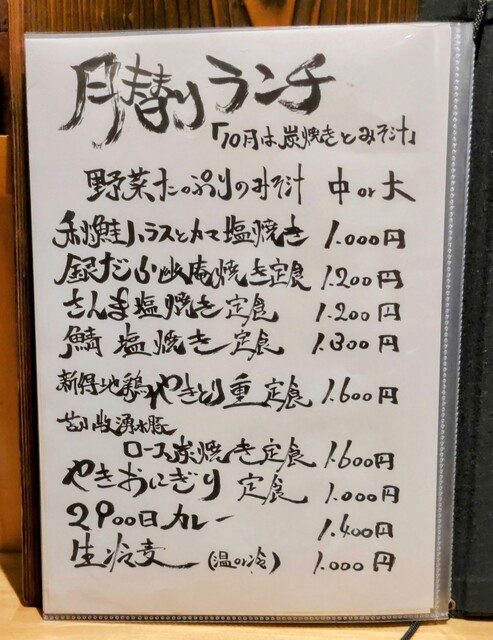 月替りランチ
「10月は炭焼きとみそ汁」
野菜たっぷりのみそ汁 中or大
秋鮭ハラスとカマ塩焼き 1.000円
銀だら幽庵焼き定食 1.200円
さんま塩焼き定食 1.200円
鯖塩焼き定食 1.300円
新得地鶏やきとり重定食 1.600円
湧水豚
ロース炭焼き定食 1.600円
やきおにぎり定食 1.000円
2900日カレー 1.400円
生冷麦 (温or冷) 1.000円